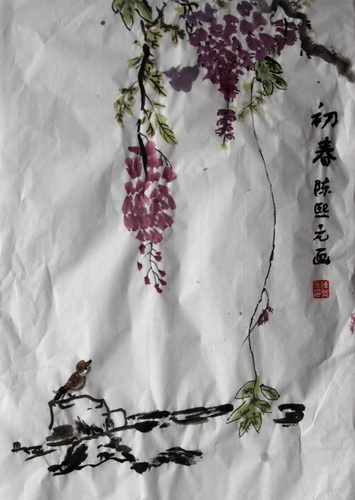 初春 陈熙元画